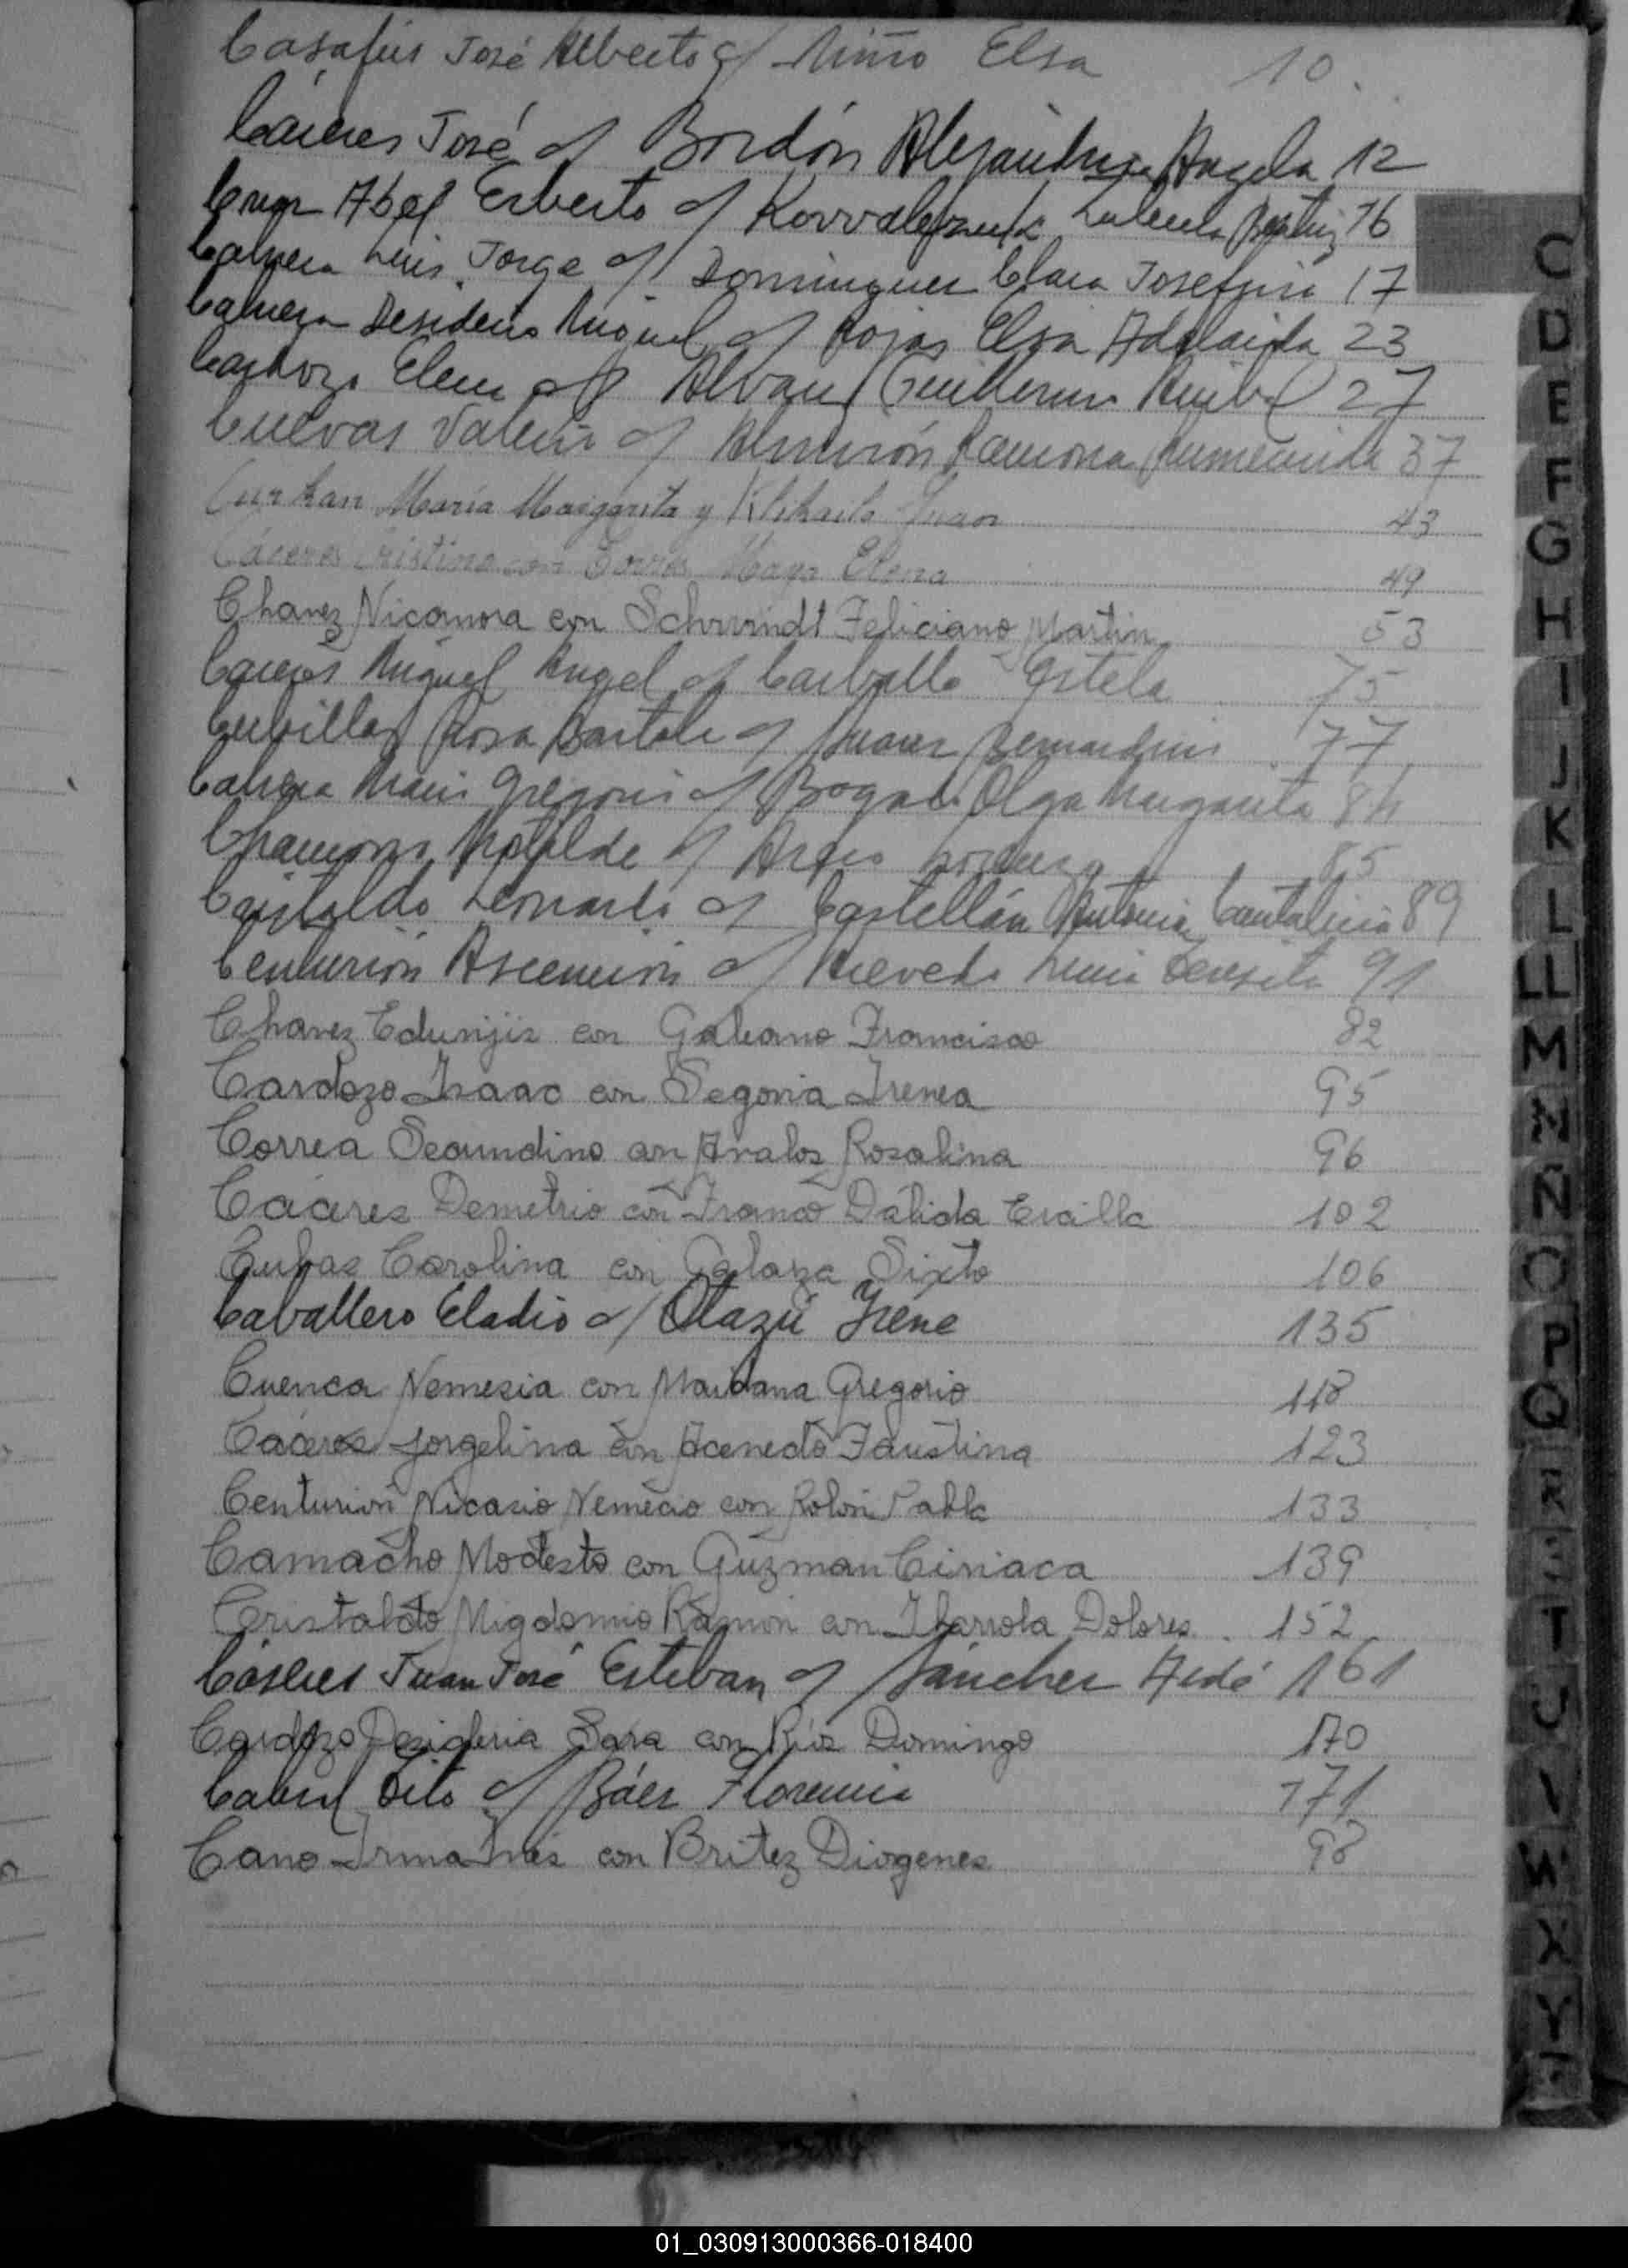 Casafús José Alberto c/ Niño Elsa 10.
Cáceres José c/ Bordón Alejandrina Angela 12
Cruz Abel Erberto c/ Beatriz 16
Cabrera Luis Jorge c/ Dominguez Clara Josefina 17
Cabrera Desiderio Miguel c/ Rojas Elsa Adelaida 23
Cardozo Elena c/ Guillermo Anibal 27
Cuevas Valerio c/ Almirón Ramona 37
María Margarita y Juan 43
Cáceres Cristino con Torres Elena 49
Chavez Nicomora con Schwindt Feliciano Martin 53
Caceres Miguel Angel c/ Carballo Estela 75
Cubilla Rosa c/ Bernardino 77
Cabrera c/ Olga Margarita 84
Chamorro Matilde c/ 85
Cristaldo Leonardo c/ Castellán Antonia Cantalicia 89
Centurión Ascención c/ Acevedo Teresita 91
Chavez Eduvijis con Galeano Francisco 82
Cardozo Isaac con Segovia Irenea 95
Correa Secundino con Avalos Rosalina 96
Cáceres Demetrio con Franco Dálida 102
Cubas Carolina con Galarza Sixto 106
Caballero Eladio c/ Olazú Irene 135
Cuenca Nemesia con Maidana Gregorio 118
Cáceres Jorgelina con Acevedo Faustino 123
Centurión Nicasio Nemecio con Rolón Pabla 133
Camacho Modesto con Guzman Ciriaca 139
Cristaldo Migdonio Ramón con Ibarrola Dolores 152
Cáseres Juan José Esteban c/ Sánchez Aidé 161
Cardozo Desideria Sara con Ríos Domingo 170
Cabral Tito c/ Báez Florencia 171
Cano Irma Inés con Britez Diogenes 98
C
D
E
F
G
H
I
J
K
L
LL
M
N
Ñ
O
P
Q
R
T
U
W
X
Y
01_030913000366-018400